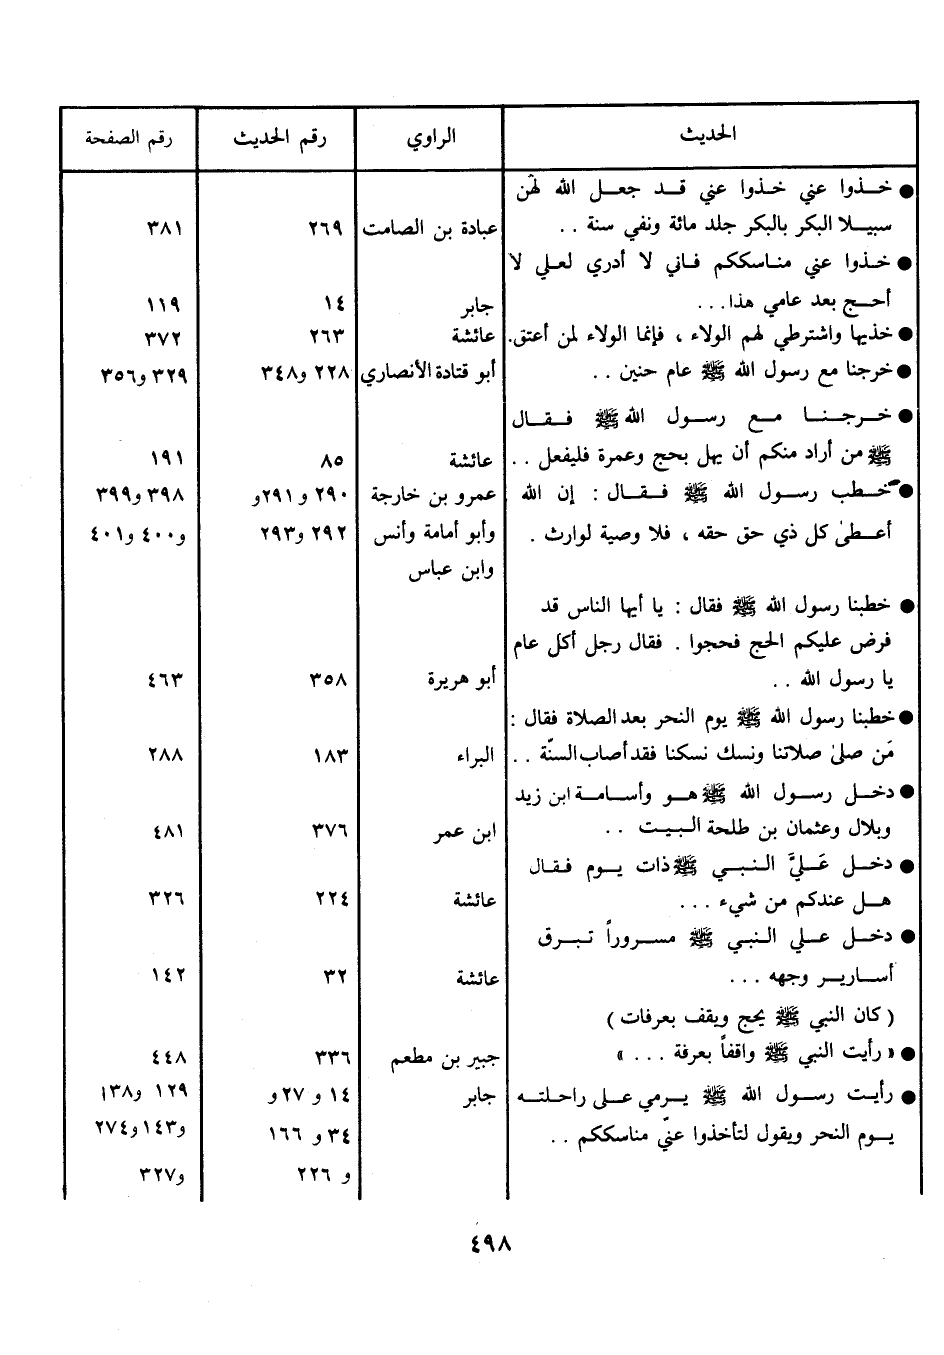 الحديث الراوي رقم الحديث رقم الصفحة
● خذوا عني خذوا عني قد جعل الله لهن
سبيلا البكر بالبكر جلد مائة ونفي سنة .. عبادة بن الصامت ٢٦٩ ٣٨١
● خذوا عني مناسككم فاني لا أدري لعلي لا
أحج بعد عامي هذا... جابر ١٤ ١١٩
● خذيها واشترطي لهم الولاء ، فإنما الولاء لمن أعتق. عائشة ٢٦٣ ٣٧٢
● خرجنا مع رسول الله ﷺ عام حنين .. أبو قتادة الأنصاري ٢٢٨ و٣٤٨ ٣٢٩ و٣٥٦
● خرجنا مع رسول الله ﷺ فقال
ﷺ من أراد منكم أن يهل بحج وعمرة فليفعل .. عائشة ٨٥ ١٩١
● خطب رسول الله ﷺ فقال : إن الله عمرو بن خارجة ٢٩٠ و ٢٩١ و ٣٩٨ و٣٩٩
أعطىٰ كل ذي حق حقه ، فلا وصية لوارث . وأبو أمامة وأنس ٢٩٢ و٢٩٣ و٤٠٠ و٤٠١
وابن عباس
● خطبنا رسول الله ﷺ فقال : يا أيها الناس قد
فرض عليكم الحج فحجوا . فقال رجل أكل عام
يا رسول الله .. أبو هريرة ٣٥٨ ٤٦٣
● خطبنا رسول الله ﷺ يوم النحر بعد الصلاة فقال :
مَن صلىٰ صلاتنا ونسك نسكنا فقد أصاب السنّة .. البراء ١٨٣ ٢٨٨
● دخل رسول الله ﷺ هو وأسامة ابن زيد
وبلال وعثمان بن طلحة البيت .. ابن عمر ٣٧٦ ٤٨١
● دخل عَليَّ النبي ﷺ ذات يوم فقال
هل عندكم من شيء ... عائشة ٢٢٤ ٣٢٦
● دخل علي النبي ﷺ مسروراً تبرق
أسارير وجهه ... عائشة ٣٢ ١٤٢
( كان النبي ﷺ يحج ويقف بعرفات )
● « رأيت النبي ﷺ واقفاً بعرفة ... » جبير بن مطعم ٣٣٦ ٤٤٨
● رأيت رسول الله ﷺ يرمي على راحلته جابر ١٤ و ٢٧ و ١٢٩ و١٣٨
يوم النحر ويقول لتأخذوا عنّي مناسككم .. ٣٤ و ١٦٦ و١٤٣ و٢٧٤
و ٢٢٦ و٣٢٧
٤٩٨